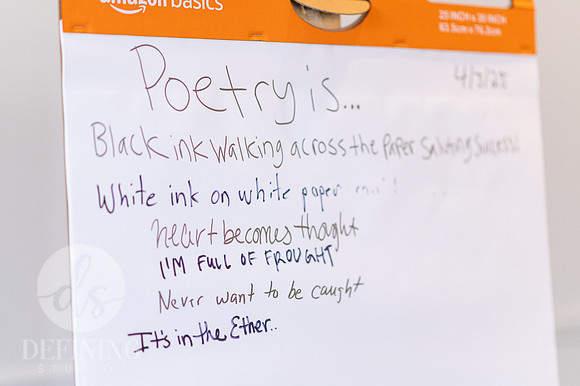 amazon basics
25 INCH x 30 INCH
63.5cm x 76.2cm
Poetry is...
Black ink walking across the Paper Saluting Success!
White ink on white paper
heart becomes thought
I'M FULL OF FROUGHT
Never want to be caught
It's in the Ether..
ds
DEFINING
STUDIO